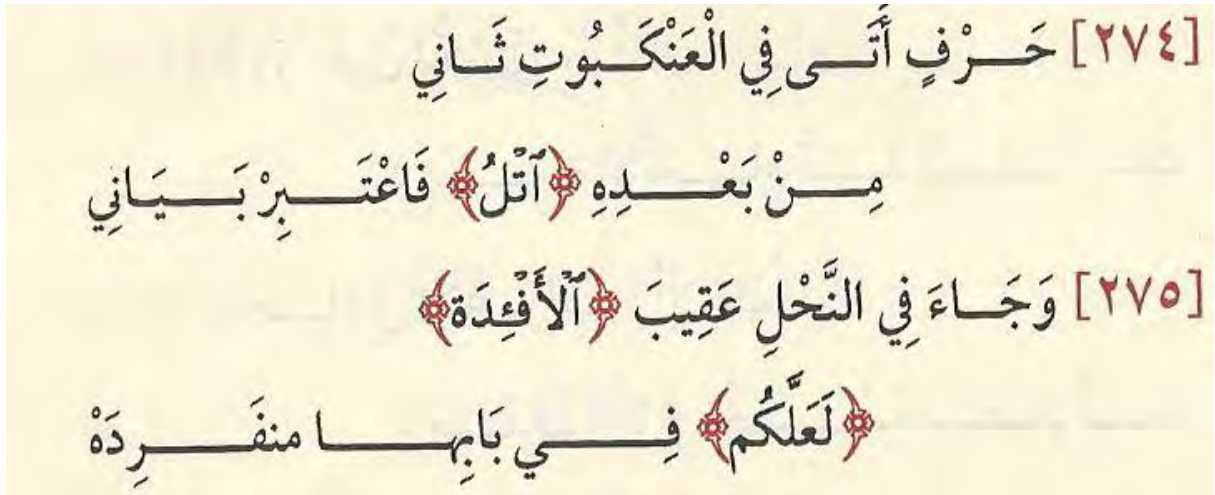 [٢٧٤] حَـــرْفٍ أَتَـــى فِي الْعَنْكَـــبُوتِ ثَـــانِي
مِـــنْ بَعْـــدِهِ ﴿ٱتْلُ﴾ فَاعْتَـــبِرْ بَـــيَانِي
[٢٧٥] وَجَـــاءَ فِي النَّحْلِ عَقِيبَ ﴿ٱلْأَفْئِدَة﴾
﴿لَعَلَّكُم﴾ فِـــي بَابِهـــا منفَـــرِدَهْ